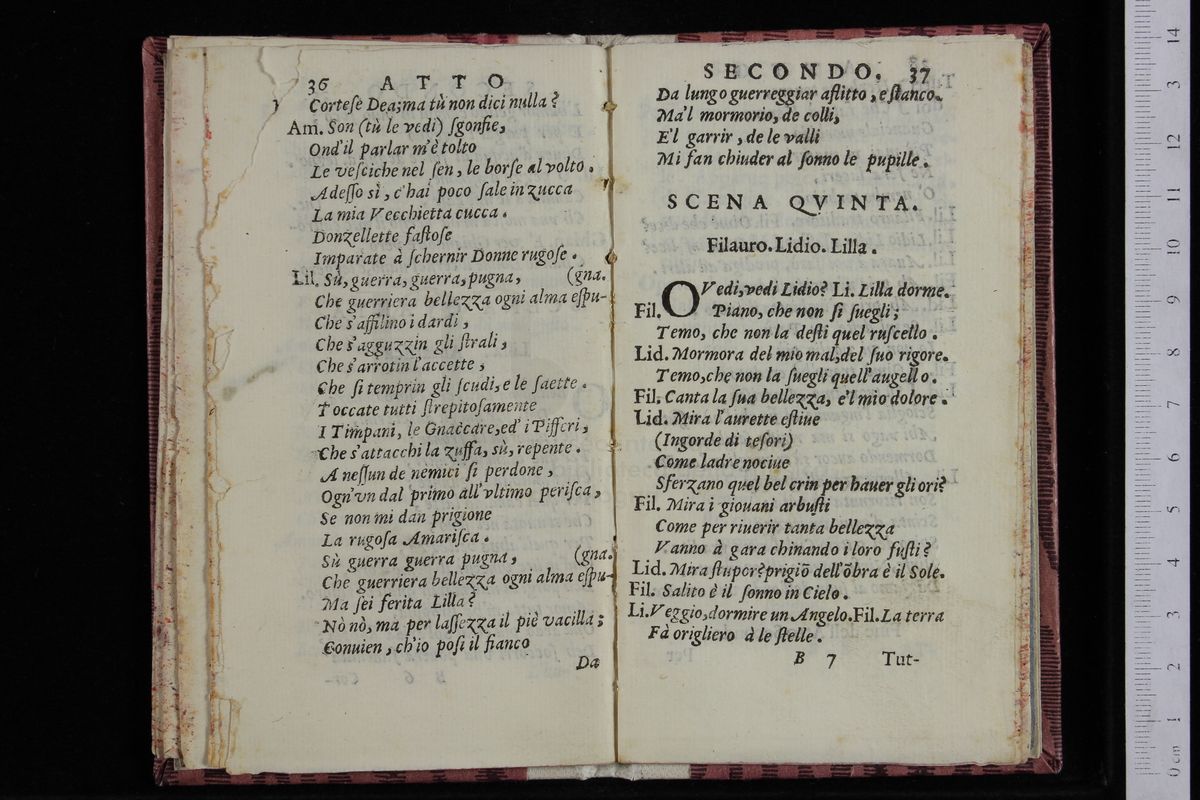 36 ATTO
Cortese Dea; ma tù non dici nulla?
Am. Son (tù le vedi) sgonfie,
Ond'il parlar m'è tolto
Le vesciche nel sen, le borse al volto.
Adesso sì, c'hai poco sale in zucca
La mia Vecchietta cucca.
Donzellette fastose
Imparate à schernir Donne rugose.
Lil. Sù, guerra, guerra, pugna, (gna.
Che guerriera bellezza ogni alma espu-
Che s'affilino i dardi,
Che s'agguzzin gli strali,
Che s'arrotin l'accette,
Che si temprin gli scudi, e le saette.
Toccate tutti strepitosamente
I Timpani, le Gnaccare, ed' i Pifferi,
Che s'attacchi la zuffa, sù, repente.
A nessun de nemici si perdone,
Ogn'vn dal primo all'vltimo perisca,
Se non mi dan prigione
La rugosa Amarisca.
Sù guerra guerra pugna, (gna.
Che guerriera bellezza ogni alma espu-
Ma sei ferita Lilla?
Nò nò, ma per lassezza il piè vacilla;
Conuien, ch'io posi il fianco
Da
SECONDO. 37
Da lungo guerreggiar aflitto, e stanco.
Ma'l mormorio, de colli,
E'l garrir, de le valli
Mi fan chiuder al sonno le pupille.
SCENA QVINTA.
Filauro. Lidio. Lilla.
Fil. O Vedi, vedi Lidio? Li. Lilla dorme.
Piano, che non si suegli;
Temo, che non la desti quel ruscello.
Lid. Mormora del mio mal, del suo rigore.
Temo, che non la suegli quell'augello.
Fil. Canta la sua bellezza, e'l mio dolore.
Lid. Mira l'aurette estiue
(Ingorde di tesori)
Come ladre nociue
Sferzano quel bel crin per hauer gli ori?
Fil. Mira i giouani arbusti
Come per riuerir tanta bellezza
Vanno à gara chinando i loro fusti?
Lid. Mira stupor? prigiō dell'ōbra è il Sole.
Fil. Salito è il sonno in Cielo.
Li. Veggio, dormire un Angelo. Fil. La terra
Fà origliero à le stelle.
B 7 Tut-
14
13
12
11
10
9
8
7
6
5
4
3
2
1
0 cm